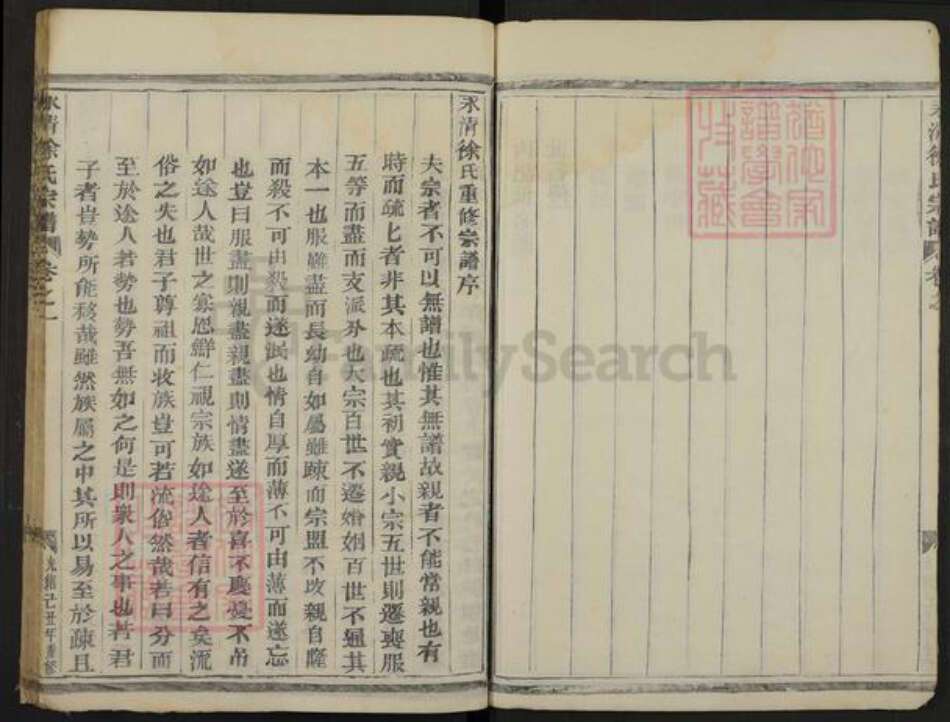 永清徐氏宗譜 卷之
永清徐氏重修宗譜序
夫宗者不可以無譜也惟其無譜故親者不能常親也有
時而疏匕者非其本疏也其初實親小宗五世則遷喪服
五等而盡而支派外也大宗百世不遷婚姻百世不通其
本一也服雖盡而長幼自如屬雖踈而宗盟不改親自隆
而殺不可由殺而遂泯也情自厚而薄不可由薄而遂忘
也豈曰服盡則親盡親盡則情盡遂至於喜不慶憂不吊
如途人哉世之寡恩鮮仁視宗族如途人者信有之矣流
俗之失也君子尊祖而收族豈可若流俗然哉若曰分而
至於途人者勢也勢吾無如之何是則衆人之事也若君
子者豈勢所能移哉雖然族屬之中其所以易至於疎且
永清徐氏宗譜 卷之一
光緒己丑年重修
FamilySearch